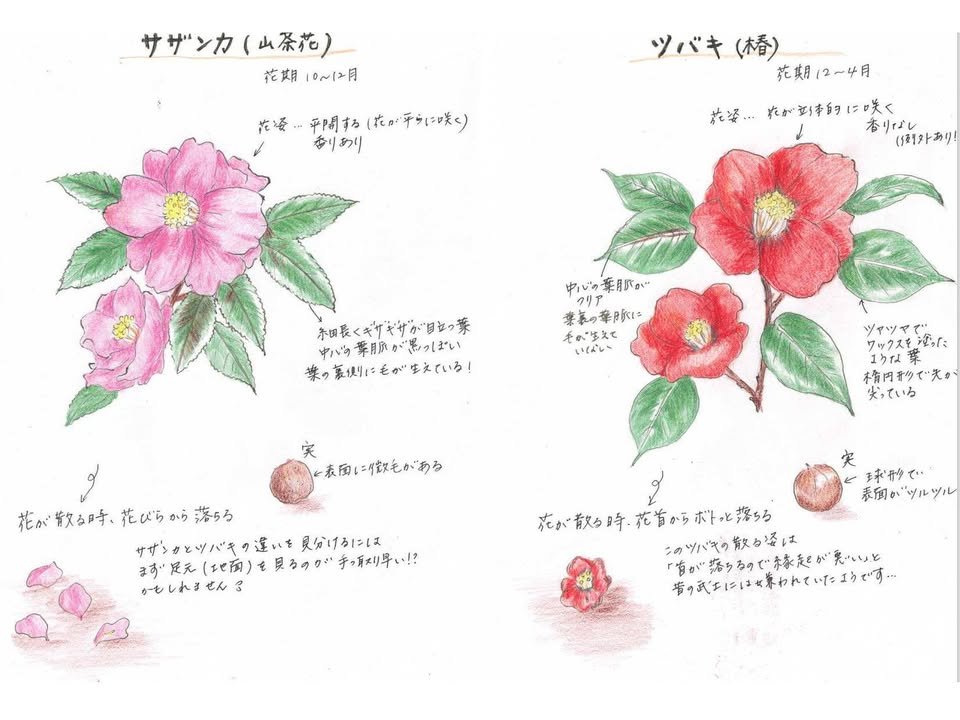 サザンカ(山茶花)
花期10~12月
花姿…平開する(花が平らに咲く)
香りあり
細長くギザギザが目立つ葉
中心の葉脈が黒っぽい
葉の裏側に毛が生えている!
実
表面に微毛がある
花が散る時、花びらから落ちる
サザンカとツバキの違いを見分けるには
まず足元(地面)を見るのが手っ取り早い!?
かもしれません?
ツバキ(椿)
花期12~4月
花姿…花が立体的に咲く
香りなし
(例外あり!
中心の葉脈が
クリア
葉裏の葉脈に
毛が生えて
いない
ツヤツヤで
ワックスを塗った
ような葉
楕円形で先が
尖っている
実
球形で
表面がツルツル
花が散る時、花首からボトっと落ちる
このツバキの散る姿は
「首が落ちるので縁起が悪い」と
昔の武士には嫌われていたようです…